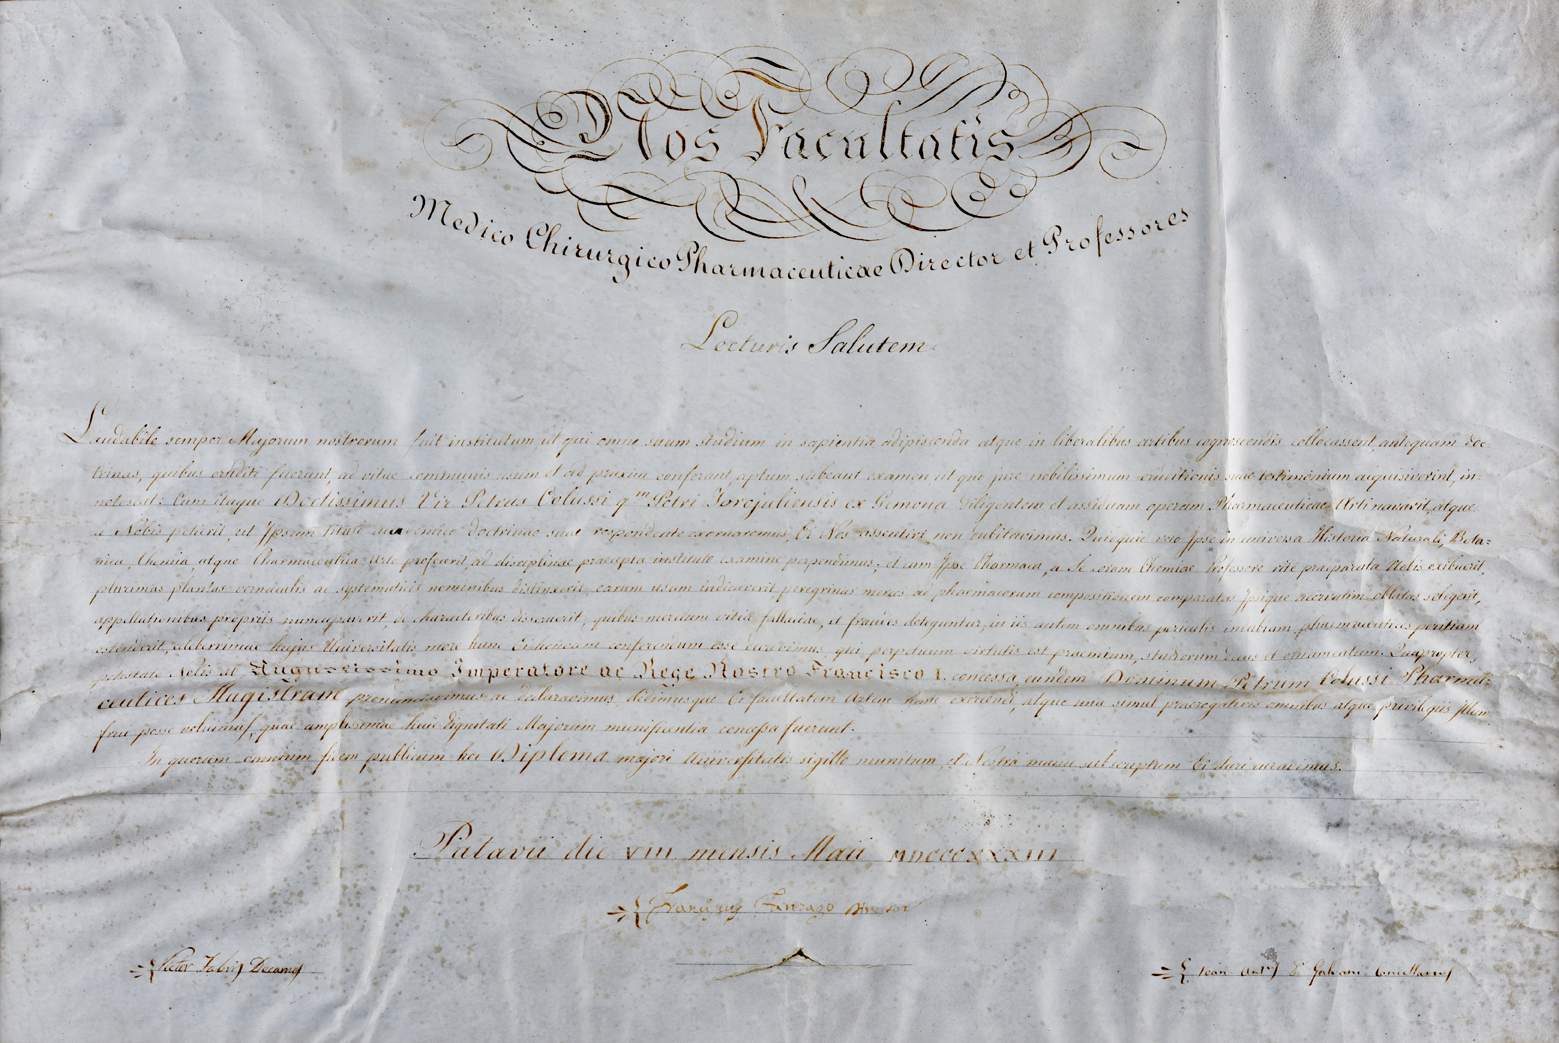 Nos Facultatis
Medico Chirurgico Pharmaceuticae Director et Professores
Lecturis Salutem.
Laudabile semper Majorum nostrorum fuit institutum, ut qui omne suum studium in sapientia adipiscenda atque in liberalibus artibus cognoscendis collocassent, antequam doc-
trinas, quibus eruditi fuerunt, ad vitae communis usum et ad praxim conferant, aptum subeant examen ut qui jure nobilissimum eruditionis suae testimonium acquisiverint, in-
notescat: Cum itaque Doctissimus Vir Petrus Colussi q.m Petri Forojuliensis ex Gemona diligentem et assiduam operam Pharmaceuticae Arti navarit, atque
a Nobis petierit, ut Ipsum titulo academico doctrinae suae respondente exornaremus, Ei Nos assentiri non dubitavimus. Quicquid vero Ipse in universa Historia Naturali, Bota=
nica, Chemia, atque Pharmaceutica Arte profecerit ad disciplinae praecepta instituto examine perpendimus; et cum Ipse Pharmaca, a Se coram Chemiae Professore rite praeparata Nobis exibuerit,
plurimas plantas vernaculis ac systematicis nominibus distinxerit, earum usum indicaverit, peregrinas merces ad pharmacorum compositionem comparatas Ipsique acervatim oblatas selegerit,
appellationibus propriis nuncupaverit, de characteribus disseruerit, quibus mercium vitia, fallaciae, et fraudes deteguntur, in iis autem omnibus periculis industriam, pharmaceutices peritiam
ostenderit, celeberrimae hujus Universitatis more hunc Ei honorem conferendum esse duximus, qui perpetuum virtutis est praemium, studiorum decus et ornamentum. Quapropter,
potestate Nobis ab Augustissimo Imperatore ac Rege Nostro Francisco I. concessa, eundem Dominum Petrum Colussi Pharma-
ceutices Magistrum pronunciavimus ac declaravimus, dedimusque Ei facultatem Artem hanc exercendi, atque una simul praerogativis omnibus atque privilegiis Illum
frui posse volumus, quae amplissimae huic dignitati Majorum munificentia concessa fuerunt.
In quorum omnium fidem publicum hoc Diploma majori Universitatis sigillo munitum, et Nostra manu subscriptum Ei dari curavimus.
Patavii die VIII mensis Maii MDCCCXXXIII
Franciscus Fanzago Director
Victor Fabris Decanus
Joan Ant.s D.r Galvani